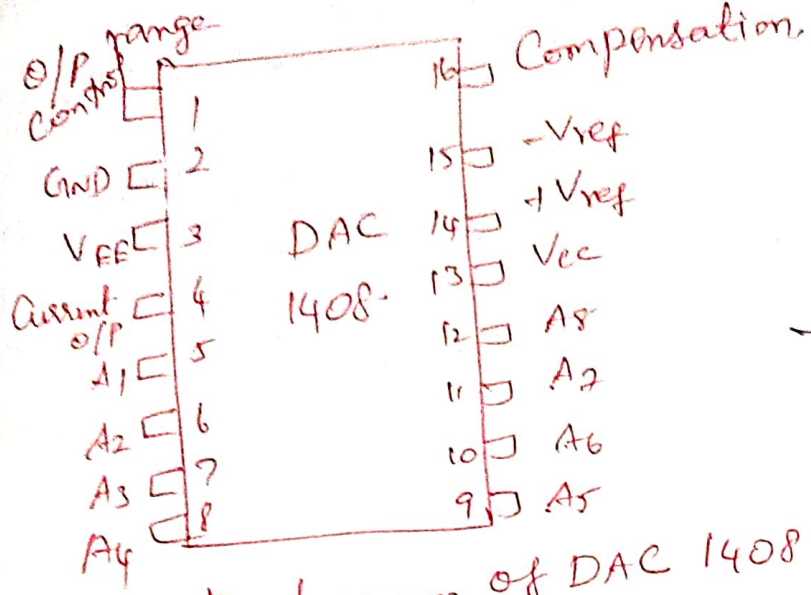 O/P range
Control
1
GND
2
VEE
3
Current
O/P
4
A1
5
A2
6
A3
7
A4
8
DAC
1408.
16
Compensation.
15
-Vref
14
+Vref
13
Vcc
12
A8
11
A7
10
A6
9
A5
of DAC 1408